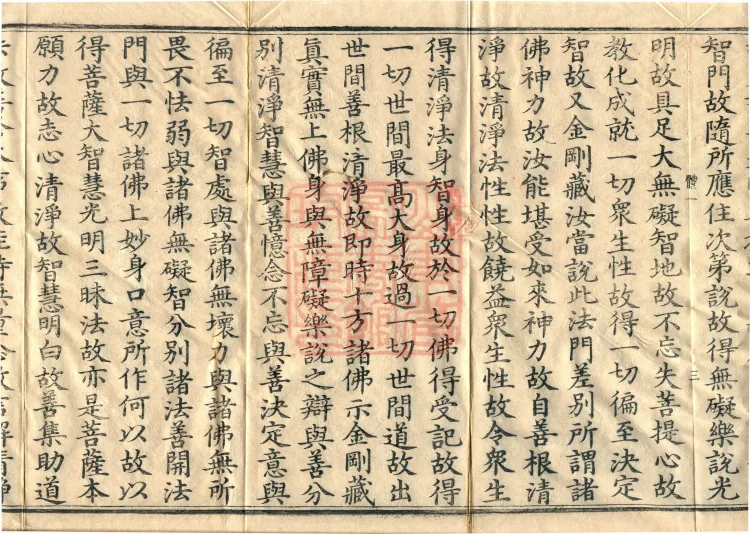 智門故隨所應住次第說故得無礙樂說光
體一
三
明故具足大無礙智地故不忘失菩提心故
教化成就一切衆生性故得一切徧至決定
智故又金剛藏汝當說此法門差別所謂諸
佛神力故汝能堪受如來神力故自善根清
淨故清淨法性性故饒益衆生性故令衆生
得清淨法身智身故於一切佛得受記故得
一切世間最高大身故過一切世間道故出
世間善根清淨故即時十方諸佛示金剛藏
眞實無上佛身與無障礙樂說之辯與善分
別清淨智慧與善憶念不忘與善決定意與
徧至一切智處與諸佛無壞力與諸佛無所
畏不怯弱與諸佛無礙智分別諸法善開法
門與一切諸佛上妙身口意所作何以故以
得菩薩大智慧光明三昧法故亦是菩薩本
願力故志心清淨故智慧明白故善集助道